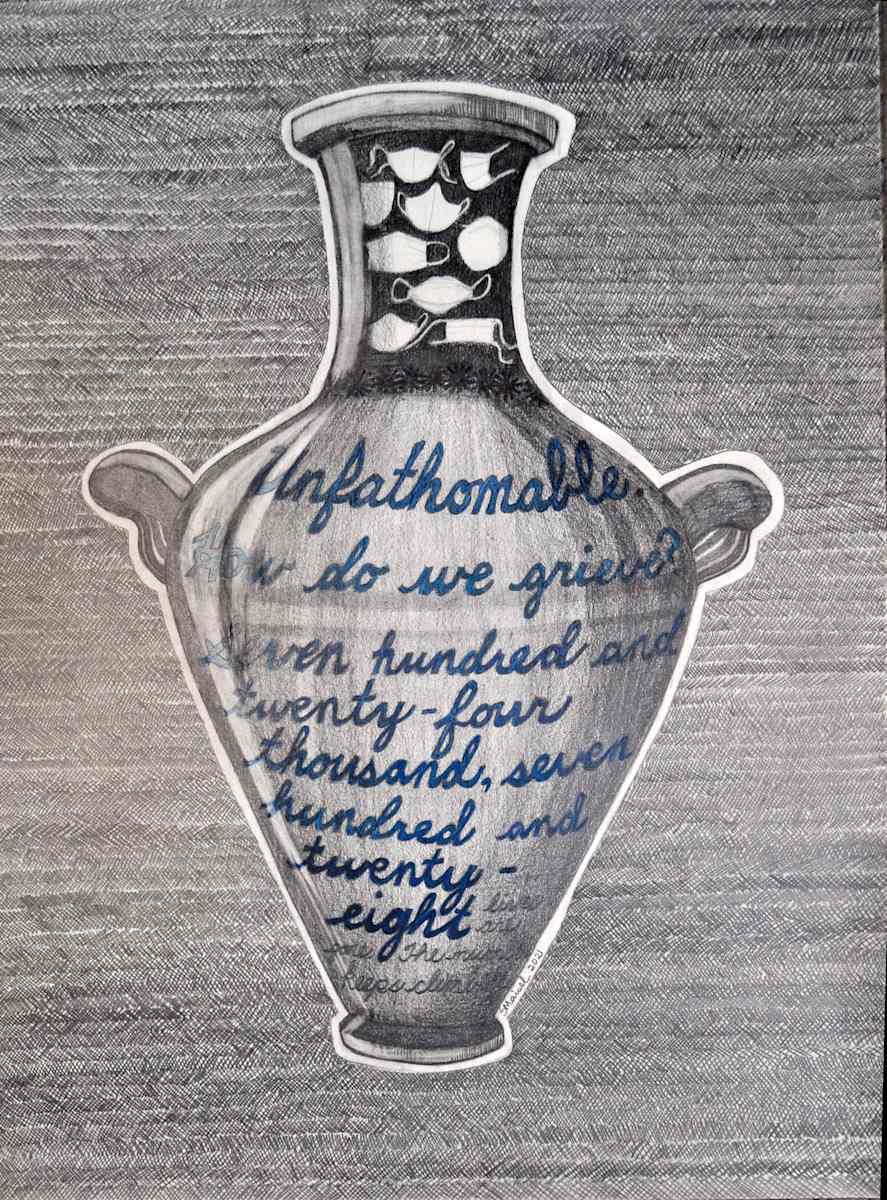 Unfathomable.
How do we grieve?
Seven hundred and
twenty-four
thousand, seven
hundred and
twenty-
eight lives
are
The
keeps
2021